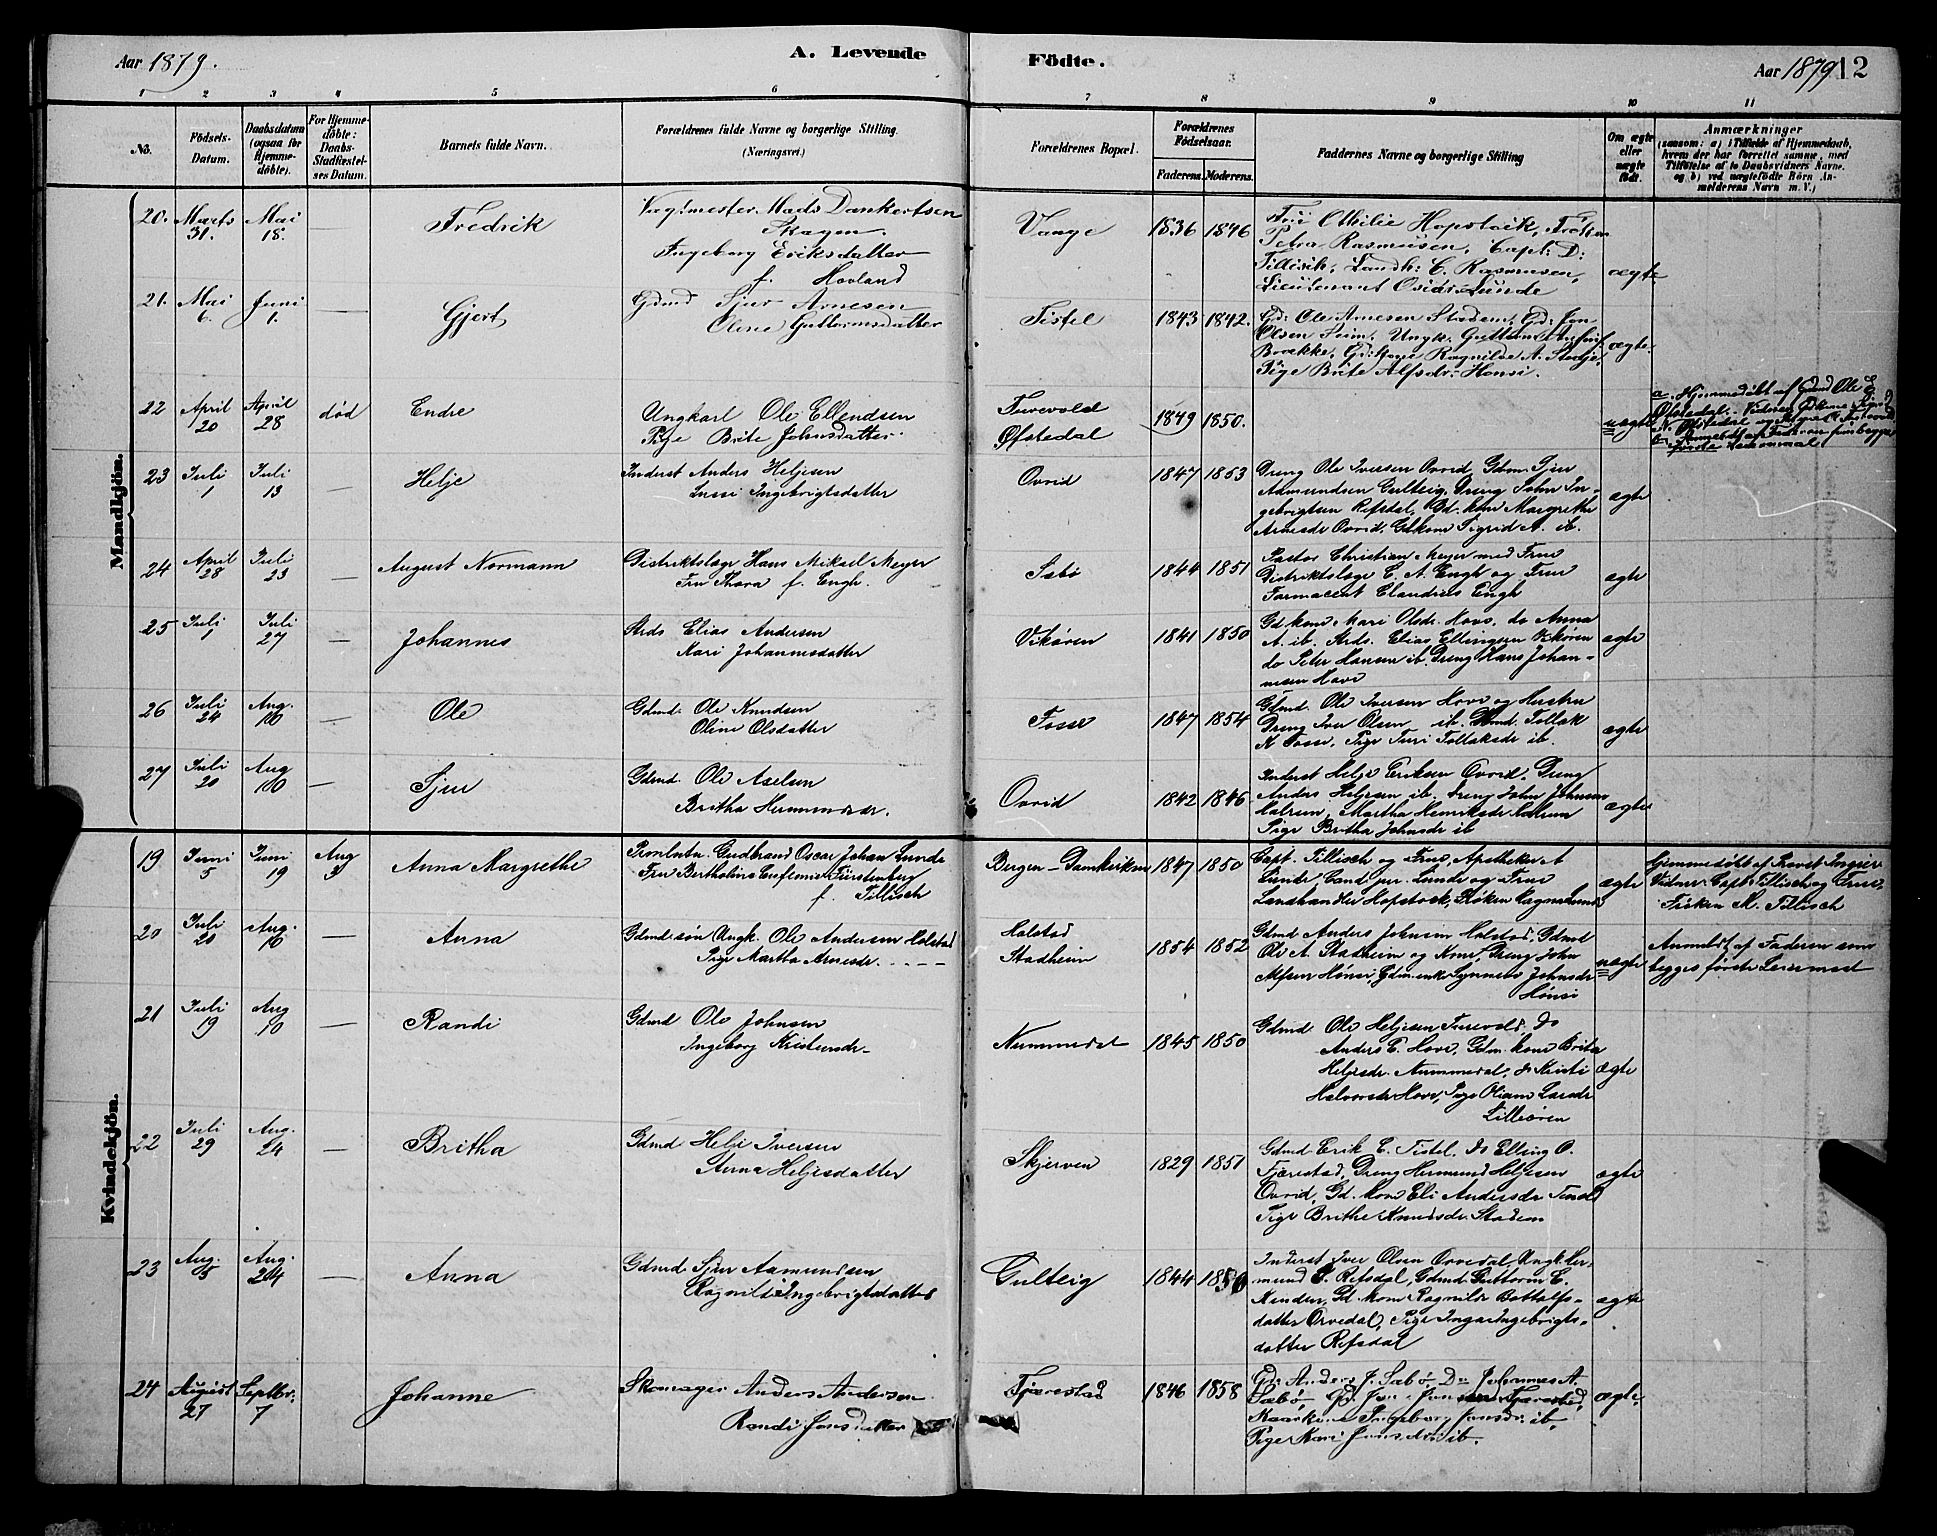 Aar 1879.
A. Levende
Födte.
Aar 1879
12
1 2 3 4 5 6 7 8 9 10 11
No.
Födsels-
Datum.
Daabsdatum
(ogsaa for
Hjemme-
döbte).
For Hjemme-
döbte:
Daabs-
Stadfæstel-
ses Datum.
Barnets fulde Navn.
Forældrenes fulde Navne og borgerlige Stilling.
(Næringsvei.)
Forældrenes Bopæl.
Forældrenes
Födselsaar.
Faderens. Moderens.
Faddernes Navne og borgerlige Stilling
Om ægte
eller
uægte
födt.
Anmærkninger
(saasom: a) i Tilfælde af Hjemmedaab,
hvem der har forrettet samme, med
Tilföielse af to Daabsvidners Navne.
og b) ved uægtefödte Börn An-
melderens Navn m. V.)
Mandkjön.
20. Marts 31. Mai 18. —
Fredrik
Vagtmester Mads Dankertsen
Skagen.
Ingeborg Eriksdatter
f. Hovland
Vange
1836 1846
Fru Othilie Hopstock, Frøken
Petra Rasmussen, Capt: D:
Tillisch, Landh: C. Rasmussen,
Lieutenant Lunde
ægte
21. Mai 6. Juni 1. —
Gjert
Gdmd Sjur Arnesen
Oline Guttormsdatter
Tistel
1843 1842.
Gd: Ole Arnesen Stadem, Gd: Jon
Olsen Seim, Ungk. Guttorm
Brække, Ragnilde A.
Pige Brite Alfsdr: Hønsi.
ægte.
22 April 20 April 28 död
Endre
Ungkarl Ole Ellendsen
Pige Brite Johnsdatter.
Turevold
Øfstedal
1849 1850.
uægte
a. Hjemmedöbt af Gmd Ole E
Øfstedal.
23 Juli 1 Juli 13 —
Helje
Inderst Anders Heljesen
Ingebrigtsdatter
Ovrid
1847 1853
Dreng Ole Iversen Ovrid, Gdm. Sjur
Aamundsen Gulteig, Dreng John In-
gebrigtsen Refsdal, Gd. kone Margrethe
Arnesdr Ovrid, Gdkone Sigrid A. ib.
ægte
24 April 28 Juli 23 —
August Normann
Distriktslæge Hans Mikael Meyer
Fru Thora f. Engh.
Sæbö
1844 1851
Pastor Christian Meyer med Frue
Distriktslæge C. A. Engh og Frue
Farmaceut Claudius Engh
ægte
25 Juli 1 Juli 27 —
Johannes
Strds Elias Andersen
Kari Johannesdatter
Vikøren
1841 1850
Gdkone Mari Olsdr. Hove, do Anna
A. ib. Strds. Elias Ellingsen Vikøren
do Peter Hansen ib. Dreng Hans Johan-
nesen Hove
ægte
26 Juli 24 Aug. 10 —
Ole
Gdmd. Ole Knudsen
Oline Olsdatter
Fosse
1847 1854
Gdmd. Ole Iversen Hove og Hustru
Dreng Iver Olsen ib. Gdmd. Tollak
K Fosse, Pige Turi Tollaksdr ib.
ægte
27 Juli 20 Aug 10 —
Sjur
Gdmd. Ole Axelsen
Britha
Ovrid
1842 1846
Inderst Helje Eriksen Ovrid, Dreng
Anders Heljesen ib. Dreng John Johnsen
Martha Henriksdr
Pige Britha Johnsdr ib
ægte
Kvindekjön.
19 Juni 5 Juni 19 Aug 3
Anna Margrethe
Gudbrand Oscar Johan Lunde
Fru Bertholine Eufemia Fürstenberg
f. Tillisch
Bergen - Damkirken
1847 1850
Capt. Tillisch og Frue, Apotheker A
Lunde Cand jur. Lunde og Frue
Landhandler Hopstock, Fröken Ragna Lunde
ægte
Hjemmedöbt af Provst
Vidner: Capt Tillisch og Frue,
Fröken M. Tillisch
20 Juli 20 Aug. 10 —
Anna
Gdmd sön Ungk. Ole Andersen Halstad
Pige Martha Arnesdr. - - - -
Halstad
Stadheim
1854 1852
Gdmd Anders Johnsen Halstad, Gdmd
Ole A. Stadheim og Kone, Dreng John
Alfsen Hönsi, Gdm.enke Synneva Johnsdr
Hönsi
uægte
Anmeldt af Faderen som
begges første Leiermaal
21 Juli 19 Aug 10 —
Randi
Gdmd Ole Johnsen
Ingeborg Kristensdr.
Nummedal
1845 1850
Gdmd Ole Heljesen Turevold, do
Anders E. Hove, Gdm. kone Brita
Heljesdr. Nummedal, do Kristi
Halvorsdr Hove, Pige Oliane Larsdr
Lilleören
ægte
22 Juli 29 Aug. 24 —
Britha
Gdmd Helje Iversen
Anna Heljesdatter
Skjerven
1829 1851
Gdmd Erik E. Tistel, do Elling O.
Fjærestad, Dreng Hermund Heljesen
Ovrid, Gd. kone Eli Andersdr
Pige Brithe Knudsdr. Stadem
ægte
23 Aug. 3 Aug. 24 —
Anna
Gdmd Sjur Aamundsen
Ragnilde Ingebrigtsdatter
Gulteig
1844 1850
Inderst Iver Olsen Orvedal, Ungk. Her-
mund S. Refsdal, Gdmd Guttorm E.
Gd. kone Ragnilde Bottolfs-
datter Orvedal, Pige Inga Ingebrigts-
datter Refsdal
ægte
24 August 27 Septbr. 7
Johanne
Skomager Anders Andersen
Randi Jonsdatter
Fjærestad
1846 1858
Gd: Anders J. Sæbö, Do Johannes A.
Sæbö, Gd. Jon Jonsen Fjærestad,
Ingeborg Jonsdr. ib,
Pige Kari Jonsdtr ib.
ægte.